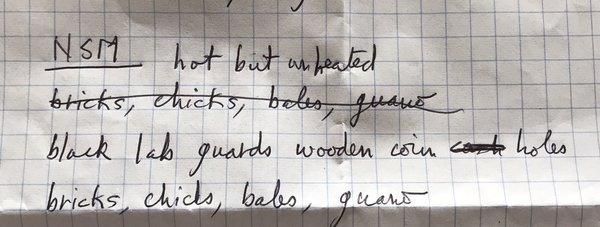 NSM hot but unheated
bricks, chicks, bales, guano
black lab guards wooden coin cash holes
bricks, chicks, bales, guano